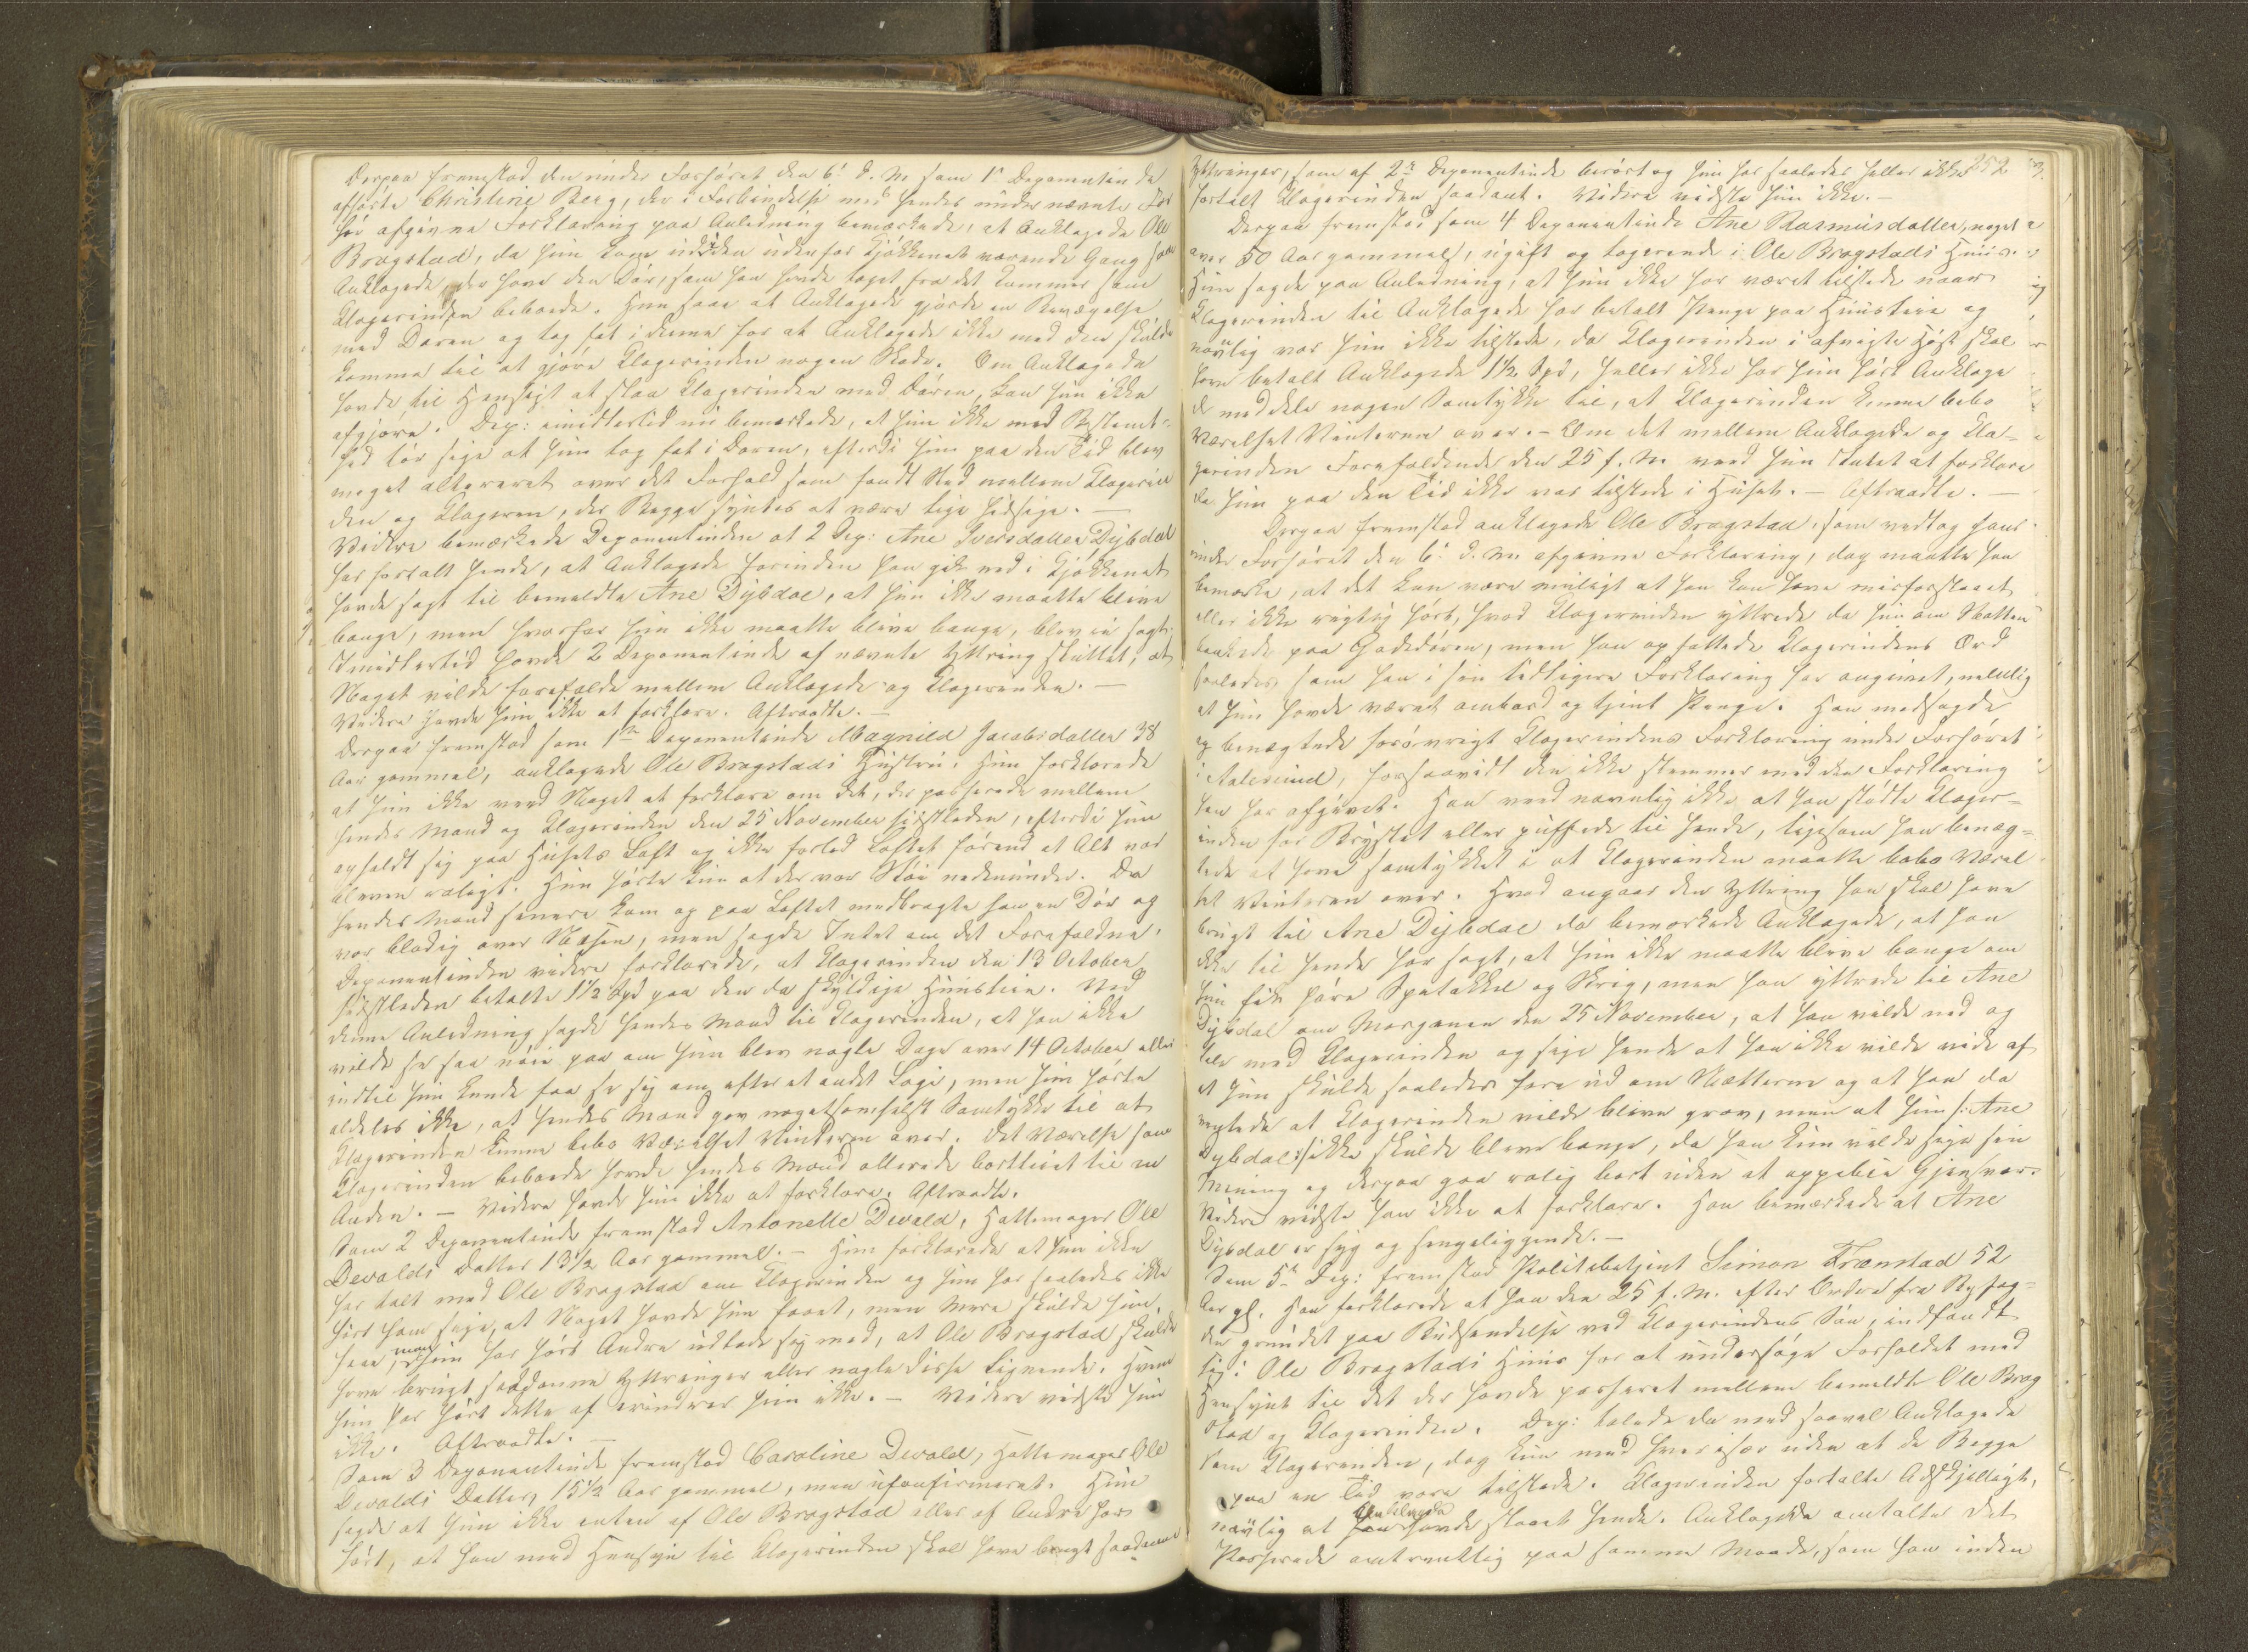 Derpaa fremstod den under Forhøret den 6' d. M. som 1' Deponentinde
afhørte Christine Berg, der i Forbindelse med hendes under nævnte For
hør afgivne Forklaring paa Anledning bemærkede, at Anklagede Ole
Bragstad, da hun kom ud i den udenfor Kjøkkenet værende Gang saa
Anklagede, der hævde den Dør, som han havde taget fra det Kammer som
Klagerinden beboede. Hun saae at Anklagede gjorde en Bevægelse
med Døren og tog fat i denne for at Anklagede ikke med den skulde
komme til at gjøre Klagerinden nogen Skade. Om Anklagede
havde til Hensigt at slaa Klagerinden med Døren, kan hun ikke
afgjøre. Dep: imidlertid nu bemærkede, at hun ikke med Bestemt-
hed tør sige at hun tog fat i Døren, efterdi hun paa den Tid blev
meget altereret over det Forhold som fandt Sted mellem Klagerin
den og Klageren, der Begge syntes at være lige hidsige. —
Videre bemærkede Deponentinden at 2 Dep: Ane Iversdatter Dybdal
har fortalt hende, at Anklagede forinden han gik ned i Kjøkkenet
havde sagt til bemeldte Ane Dybdal, at hun ikke maatte blive
bange, men hvorfor hun ikke maatte blive bange, blev ei sagt.
Imidlertid havde 2 Deponentinde af nævnte Yttring sluttet, at
Noget vilde forefalde mellem Anklagede og Klagerinden. —
Videre havde hun ikke at forklare. Aftraadte. —
Derpaa fremstod som 1ste Deponentinde Magnild Jacobsdatter 38
Aar gammel, anklagede Ole Bragstads Hustru. Hun forklarede
at hun ikke veed Noget at forklare om det, der passerede mellem
hendes Mand og Klagerinden den 25 November sidstleden, efterdi hun
opholdt sig paa Husets Loft og ikke forlod Loftet førend at Alt var
bleven roligt. Hun hørte kun at der var Støi nedenunder. Da
hendes Mand senere kom op paa Loftet medbragte han en Dør og
var blodig over Næsen, men sagde Intet om det Forefaldne.
Deponentinden videre forklarede, at Klagerinden den 13 October
sidstleden betalte 1½ Spd paa den da skyldige Huusleie. Ved
denne Anledning sagde hendes Mand til Klagerinden, at han ikke
vilde se saa nøie paa om hun blev nogle Dage over 14 October eller
indtil hun kunde faa se sig om efter et andet Logi, men hun hørte
aldeles ikke, at hendes Mand gav nogetsomhelst Samtykke til at
Klagerinden kunne bebo Værelset Vinteren over. Det Værelse som
Klagerinden beboede havde hendes Mand allerede bortleiet til en
Anden. — Videre havde hun ikke at forklare. Aftraadte.
Som 2 Deponentinde fremstod Antonette Devold, Hattemager Ole
Devolds Datter 13½ Aar gammel. — Hun forklarede at hun ikke
har talt med Ole Bragstad om Klagerinden og hun har saaledes ikke
hørt ham sige, at Noget havde hun faaet, men mere skulde hun
faae, men hun har hørt Andre udlade sig med, at Ole Bragstad skulde
have brugt saadanne Yttringer eller nogle disse lignende. Hvem
hun har hørt dette af erindrer hun ikke. — Videre vidste hun
ikke. Aftraadte. —
Som 3 Deponentinde fremstod Caroline Devold, Hattemager Ole
Devolds Datter, 15½ Aar gammel, men ukonfirmeret. Hun
sagde at hun ikke enten af Ole Bragstad eller af Andre har
hørt, at han med Hensyn til Klagerinden skal have brugt saadanne
Yttringer, som af 2den Deponentinde berørt og hun har saaledes heller ikke 252
fortalt Klagerinden saadant. Videre vidste hun ikke. —
Derpaa fremstod som 4 Deponentinde Ane Rasmusdatter, noget
over 50 Aar gammel, ugift og logerende i Ole Bragstads Huus.
Hun sagde paa Anledning, at hun ikke har været tilstede naar
Klagerinden til Anklagede har betalt Penge paa Huusleie og
navnlig var hun ikke tilstede, da Klagerinden i afvigte Høst skal
have betalt Anklagede 1½ Spd, heller ikke har hun hørt Anklage
de meddele nogen Samtykke til, at Klagerinden kunne bebo
Værelset Vinteren over. — Om det mellem Anklagede og Kla-
gerinden Forefaldende den 25 f. M. veed hun Intet at forklare
da hun paa den Tid ikke var tilstede i Huset. — Aftraadte. —
Derpaa fremstod anklagede Ole Bragstad, som vedtog hans
under Forhøret den 6' d. M. afgivne Forklaring, dog maatte han
bemærke, at det kan være muligt at han kan have misforstaaet
eller ikke rigtig hørt, hvad Klagerinden yttrede da hun om Natten
bankede paa Gadedøren, men han opfattede Klagerindens Ord
saaledes som han i sin tidligere Forklaring har angivet, nemlig
at hun havde været ombord og tjent Penge. Han modsagde
og benægtede forøvrigt Klagerindens Forklaring under Forhøret
i Aalesund, forsaavidt den ikke stemmer med den Forklaring
han har afgivet. Han veed navnlig ikke at han stødte Klager-
inden for Brystet eller puffede til hende, ligesom han benæg-
tede at have samtykket i at Klagerinden maatte bebo Værel
set Vinteren over. Hvad angaar den Yttring han skal have
brugt til Ane Dybdal da bemærkede Anklagede, at han
ikke til hende har sagt, at hun ikke maatte blive bange om
hun fik høre Spetakkel og Skrig, men han yttrede til Ane
Dybdal om Morgenen den 25 November, at han vilde ned og
tale med Klagerinden og sige hende at han ikke vilde vide af
at hun skulde saaledes fare ud om Nætterne og at han da
ventede at Klagerinden vilde blive grov, men at hun /: Ane
Dybdal :/ ikke skulde blive bange, da han kun vilde sige sin
Mening og derpaa gaa rolig bort uden at oppebie Gjensvar.
Videre vidste han ikke at forklare. Han bemærkede at Ane
Dybdal er syg og sengeliggende. —
Som 5te Dep: fremstod Politibetjent Simon Transtad 52
Aar gl. Han forklarede at han den 25 f. M. efter Ordre fra Byfog-
den grundet paa Budsendelse ved Klagerindens Søn, indfandt
sig i Ole Bragstads Huus for at undersøge Forholdet med
Hensyn til det der havde passeret mellem bemeldte Ole Brag
stad og Klagerinden. Dep: talede da med saavel Anklagede
som Klagerinden, dog kun med hver især uden at de Begge
paa en Tid vare tilstede. Klagerinden fortalte Adskjelligt,
navnlig at Anklagede havde slaaet hende. Anklagede omtalte det
Passerede omtrentlig paa samme Maade, som han inden